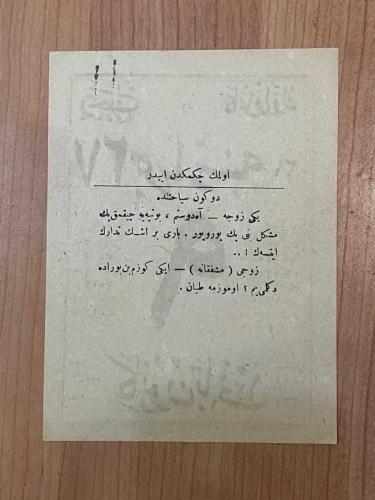 اولمك چكمكدن اييدر
دوكون سياحتنده
يكى زوجه — آه دوستم ، بو تپه يه چيقمق پك
مشكل نى پك يورويور . بارى بر اشك تدارك
ايتسه ك ! ..
زوجى ( مشفقانه ) — ايكى كوزم بن بوراده
دكلمى يم ؟ اوموزمه طيان .